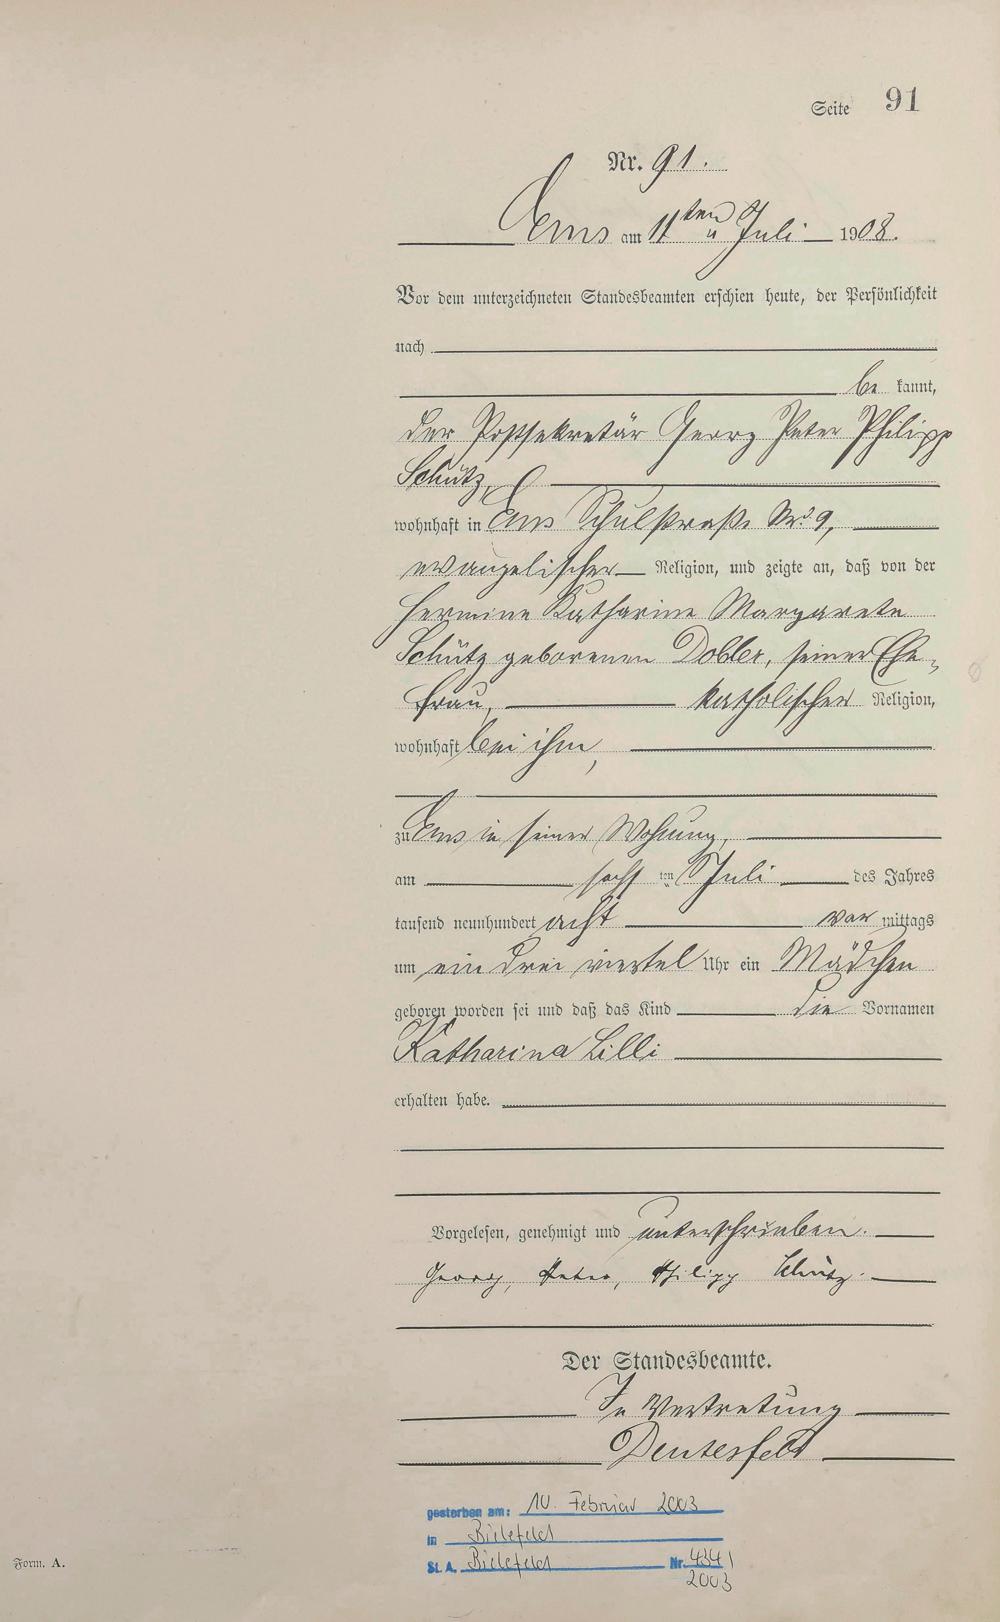 Seite 91
Nr. 91.
Ems am 11ten Juli 1908.
Vor dem unterzeichneten Standesbeamten erschien heute, der Persönlichkeit
nach
be kannt,
der Postsekretär Georg Peter Philipp
Schütz,
wohnhaft in Ems Schulstraße No 9,
evangelischer Religion, und zeigte an, daß von der
Hermine Katharine Margarete
Schütz geborenen Dobler, seiner Ehe-
frau, katholischer Religion,
wohnhaft bei ihm,
zu Ems in seiner Wohnung,
am sechs ten Juli des Jahres
tausend neunhundert acht vor mittags
um ein drei viertel Uhr ein Mädchen
geboren worden sei und daß das Kind die Vornamen
Katharina Lilli
erhalten habe.
Vorgelesen, genehmigt und unterschrieben.
Georg, Peter, Philipp Schütz.
Der Standesbeamte.
In Vertretung
Deutesfeld
gestorben am: 10. Februar 2003
in Bielefeld
St. A. Bielefeld Nr. 434/
2003
Form. A.